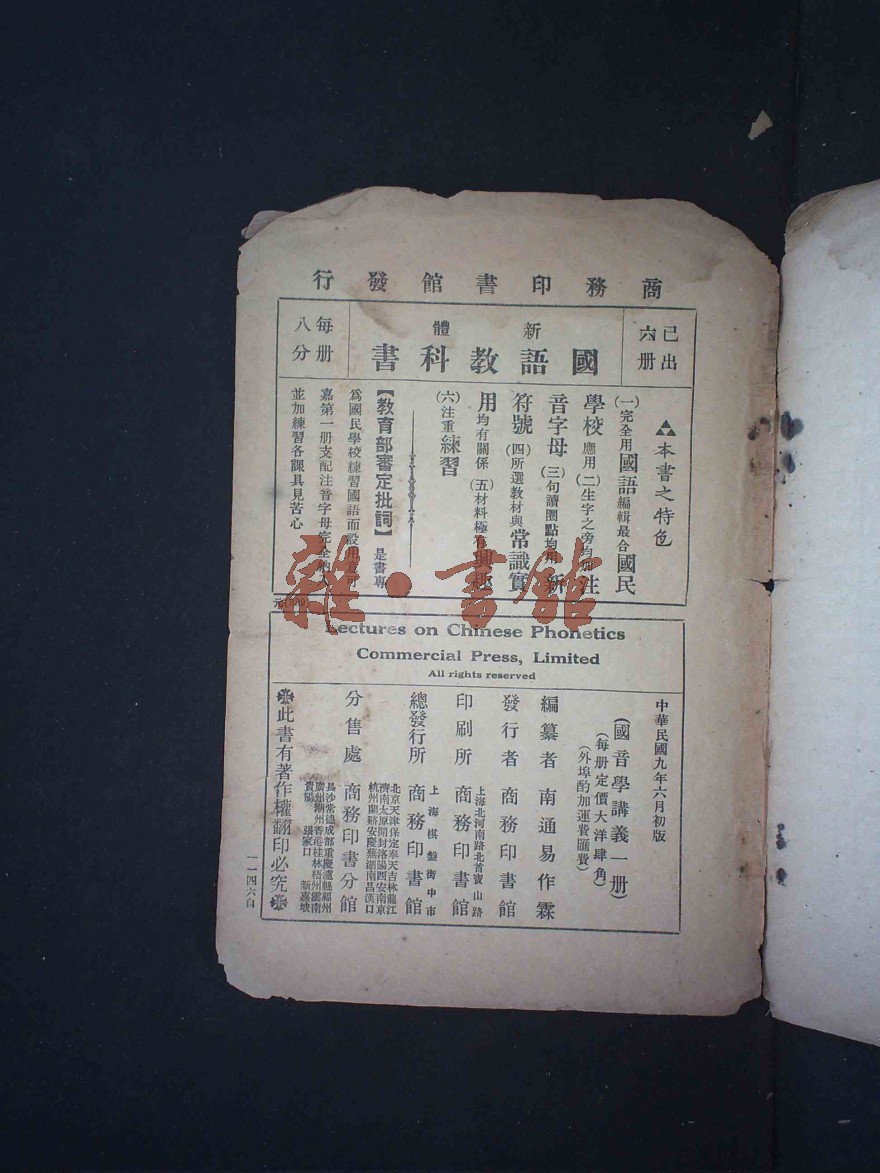 商務印書館發行
已出六册
新體
國語教科書
每册八分
本書之特色
(一)完全用國語編輯最合國民
學校應用(二)生字之旁均加注
音字母(三)句讀圈點均用新
符號(四)所選教材與常識實
用均有關係(五)材料極有興趣
(六)注重練習
【教育部審定批詞】是書專
爲國民學校練習國語而設用意可
嘉第一册支配注音字母完全
並加練習各課具見苦心
雜·書館
Lectures on Chinese Phonetics
Commercial Press, Limited
All rights reserved
中華民國九年六月初版
(國音學講義一册)
(每册定價大洋肆角)
(外埠酌加運費匯費)
編纂者 南通易作霖
發行者 商務印書館
上海北河南路北首寶山路
印刷所 商務印書館
上海棋盤街中市
總發行所 商務印書館
北京天津保定奉天吉林龍江
濟南太原開封洛陽西安南京
杭州蘭谿安慶蕪湖南昌漢口
分售處 商務印書分館
長沙常德成都重慶瀘縣福州
廣州潮州香港桂林梧州雲南
貴陽 張家口 新嘉坡
此書有著作權翻印必究
一一四六自